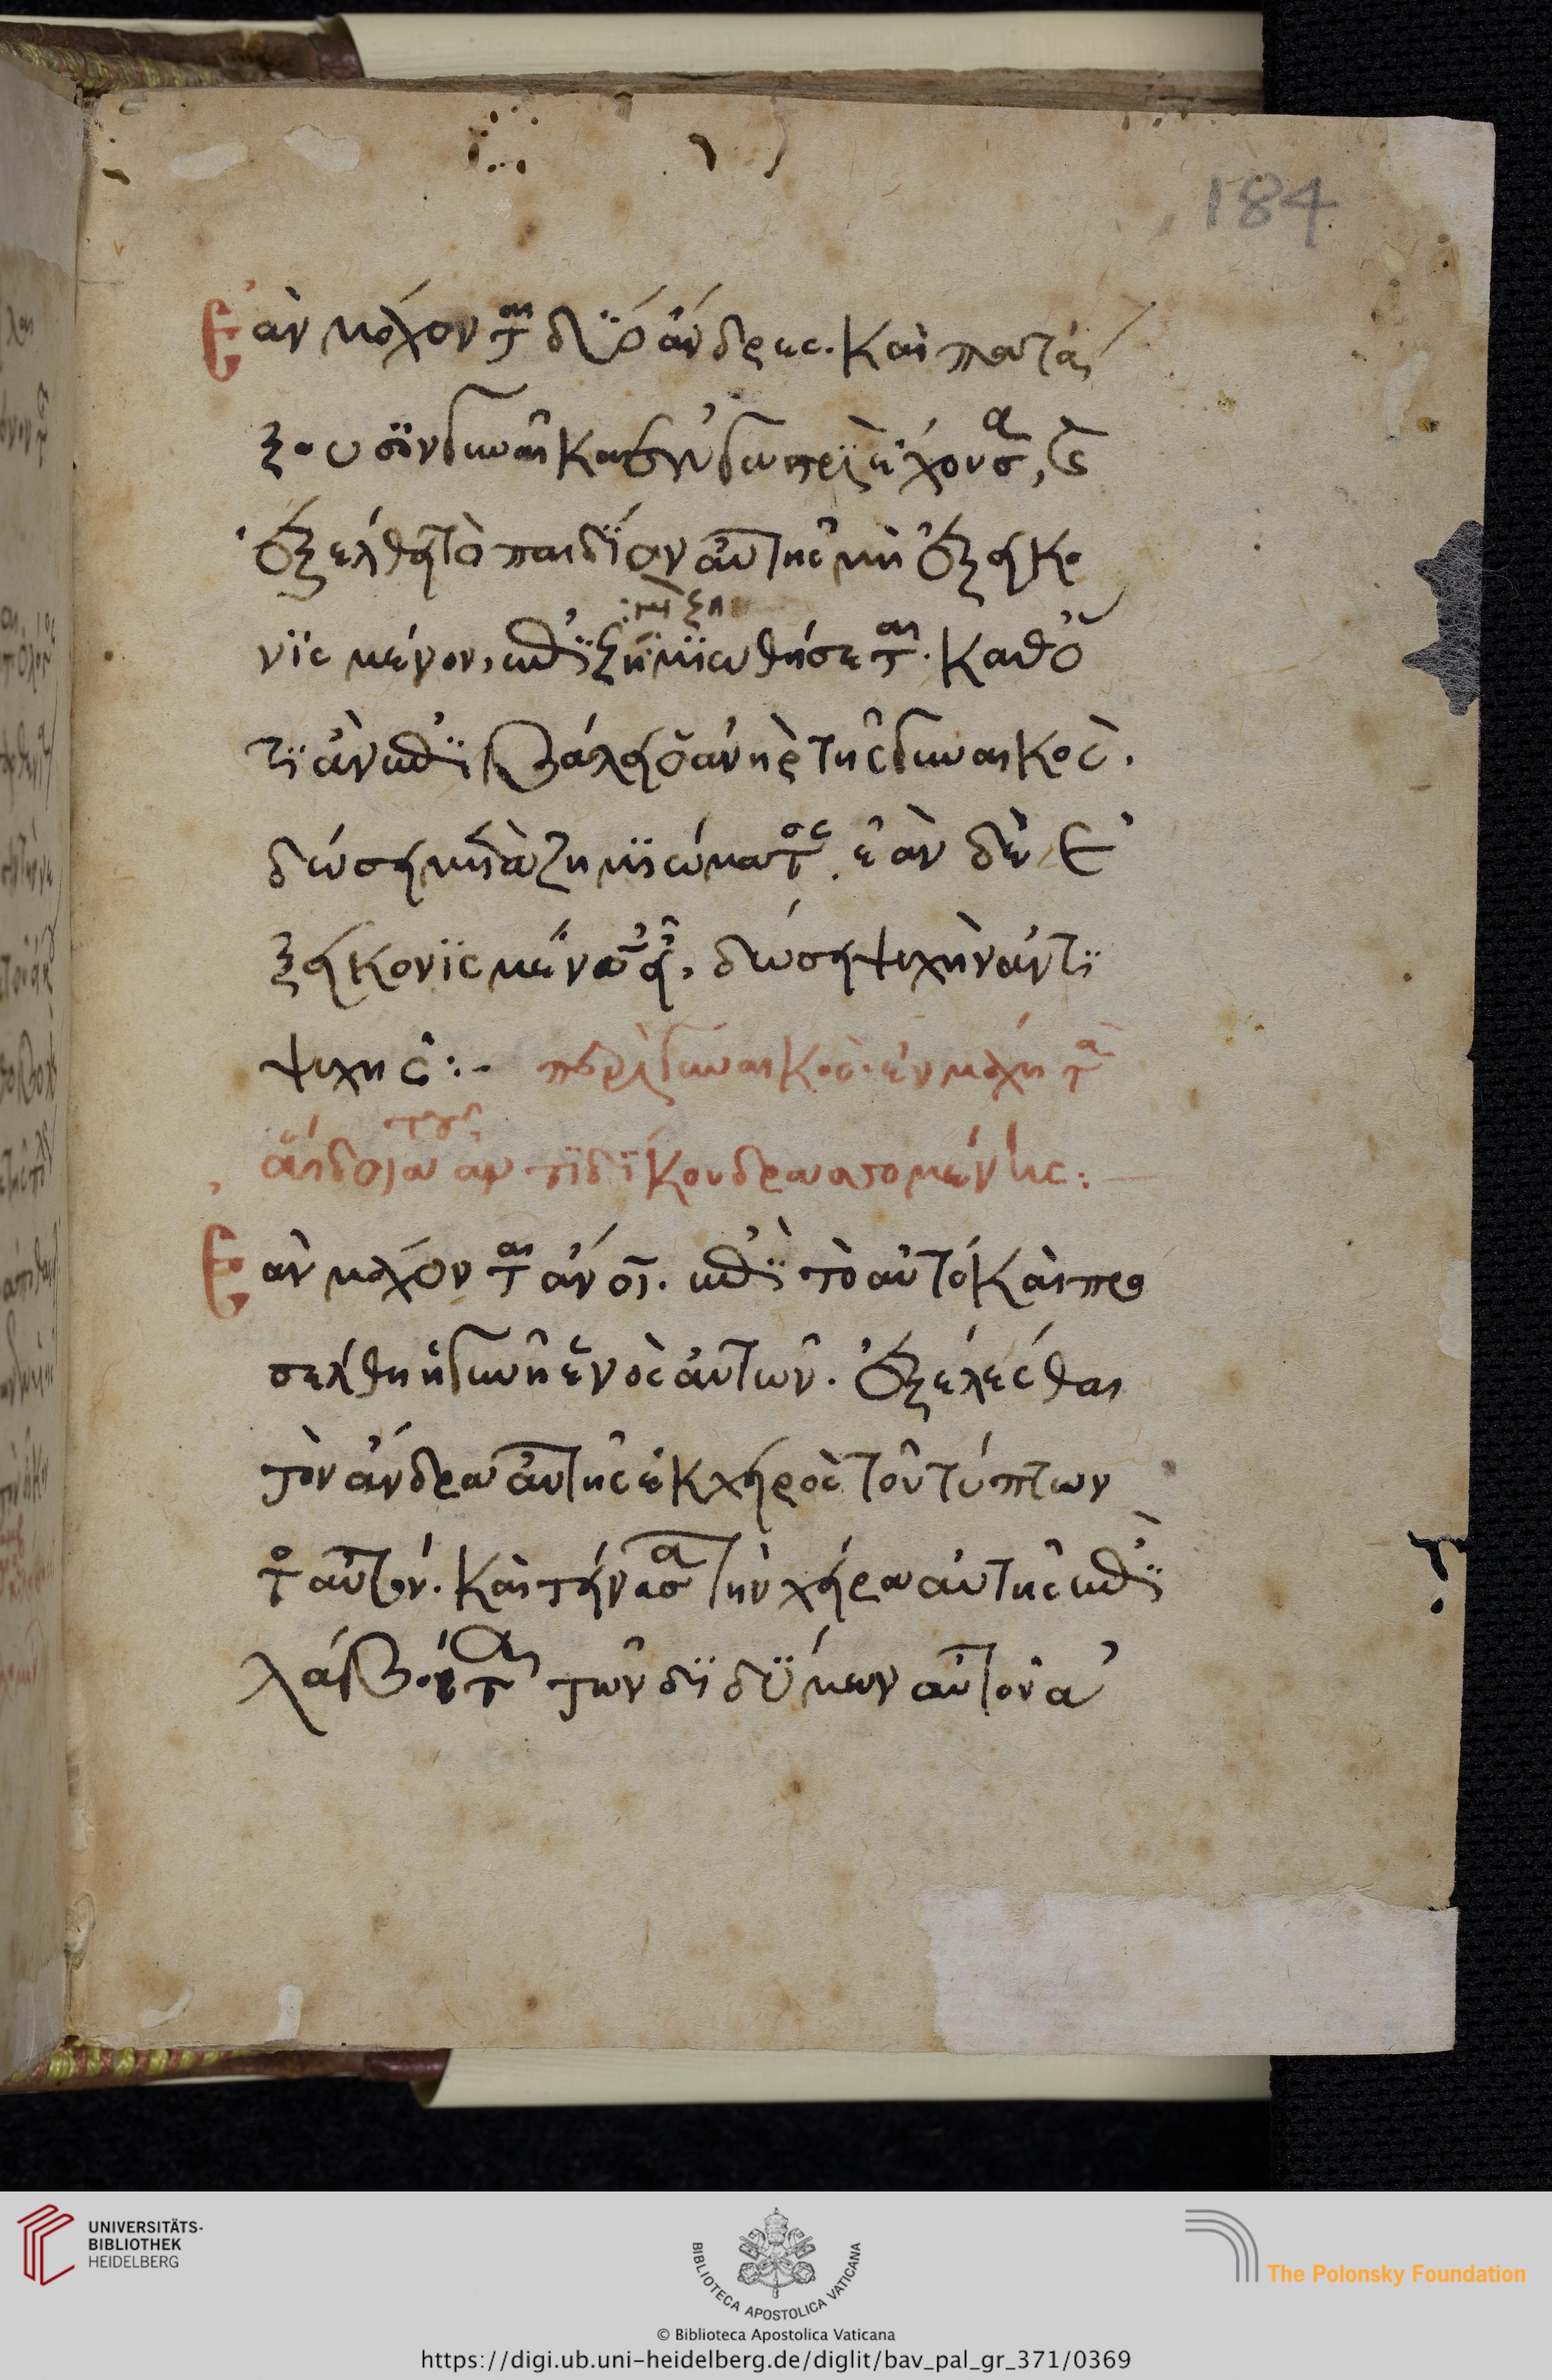 184
Ἐὰν μάχονται δύο ἄνδρες. καὶ πατά
ξουσϊν γυναῖκα ἐν γαστρὶ ἔχουσα, καὶ
ἐξέλθη τὸ παιδΐον αὐτῆς μὴ ἐξεικο
νϊσμένον, ἐπϊζημϊωθήσεται. καθό
τϊ ἂν ἐπϊβάλει ὁ ἀνὴρ τῆς γυναικὸς.
δώσει μετὰ ζημϊώματος. ἐὰν δὲ ἐ
ξεικονϊσμένον εἶ, δώσει ψυχὴν ἀντὶ
ψυχῆς:-
περὶ γυναικὸς ἐν μάχη τὰ
αἰδοῖα τοῦ ἀντϊδΐκου δραασομένης:
Ἐὰν μάχονται ἄνοι. ἐπῒ τὸ αὐτὸ καὶ προ
σέλθη ἡ γυνὴ ἑνὸς αὐτῶν. ἐξελέσθαι
τὸν ἄνδρα αὐτῆς ἐκ χειρὸς τοῦ τύπτων
το αὐτόν. καὶ τείνασα τὴν χεῖρα αὐτῆς ἐπῒ
λάβοιται τῶν δϊδΰμων αὐτοῦ ἀ
UNIVERSITÄTS-
BIBLIOTHEK
HEIDELBERG
BIBLIOTECA APOSTOLICA VATICANA
The Polonsky Foundation
© Biblioteca Apostolica Vaticana
https://digi.ub.uni-heidelberg.de/diglit/bav_pal_gr_371/0369